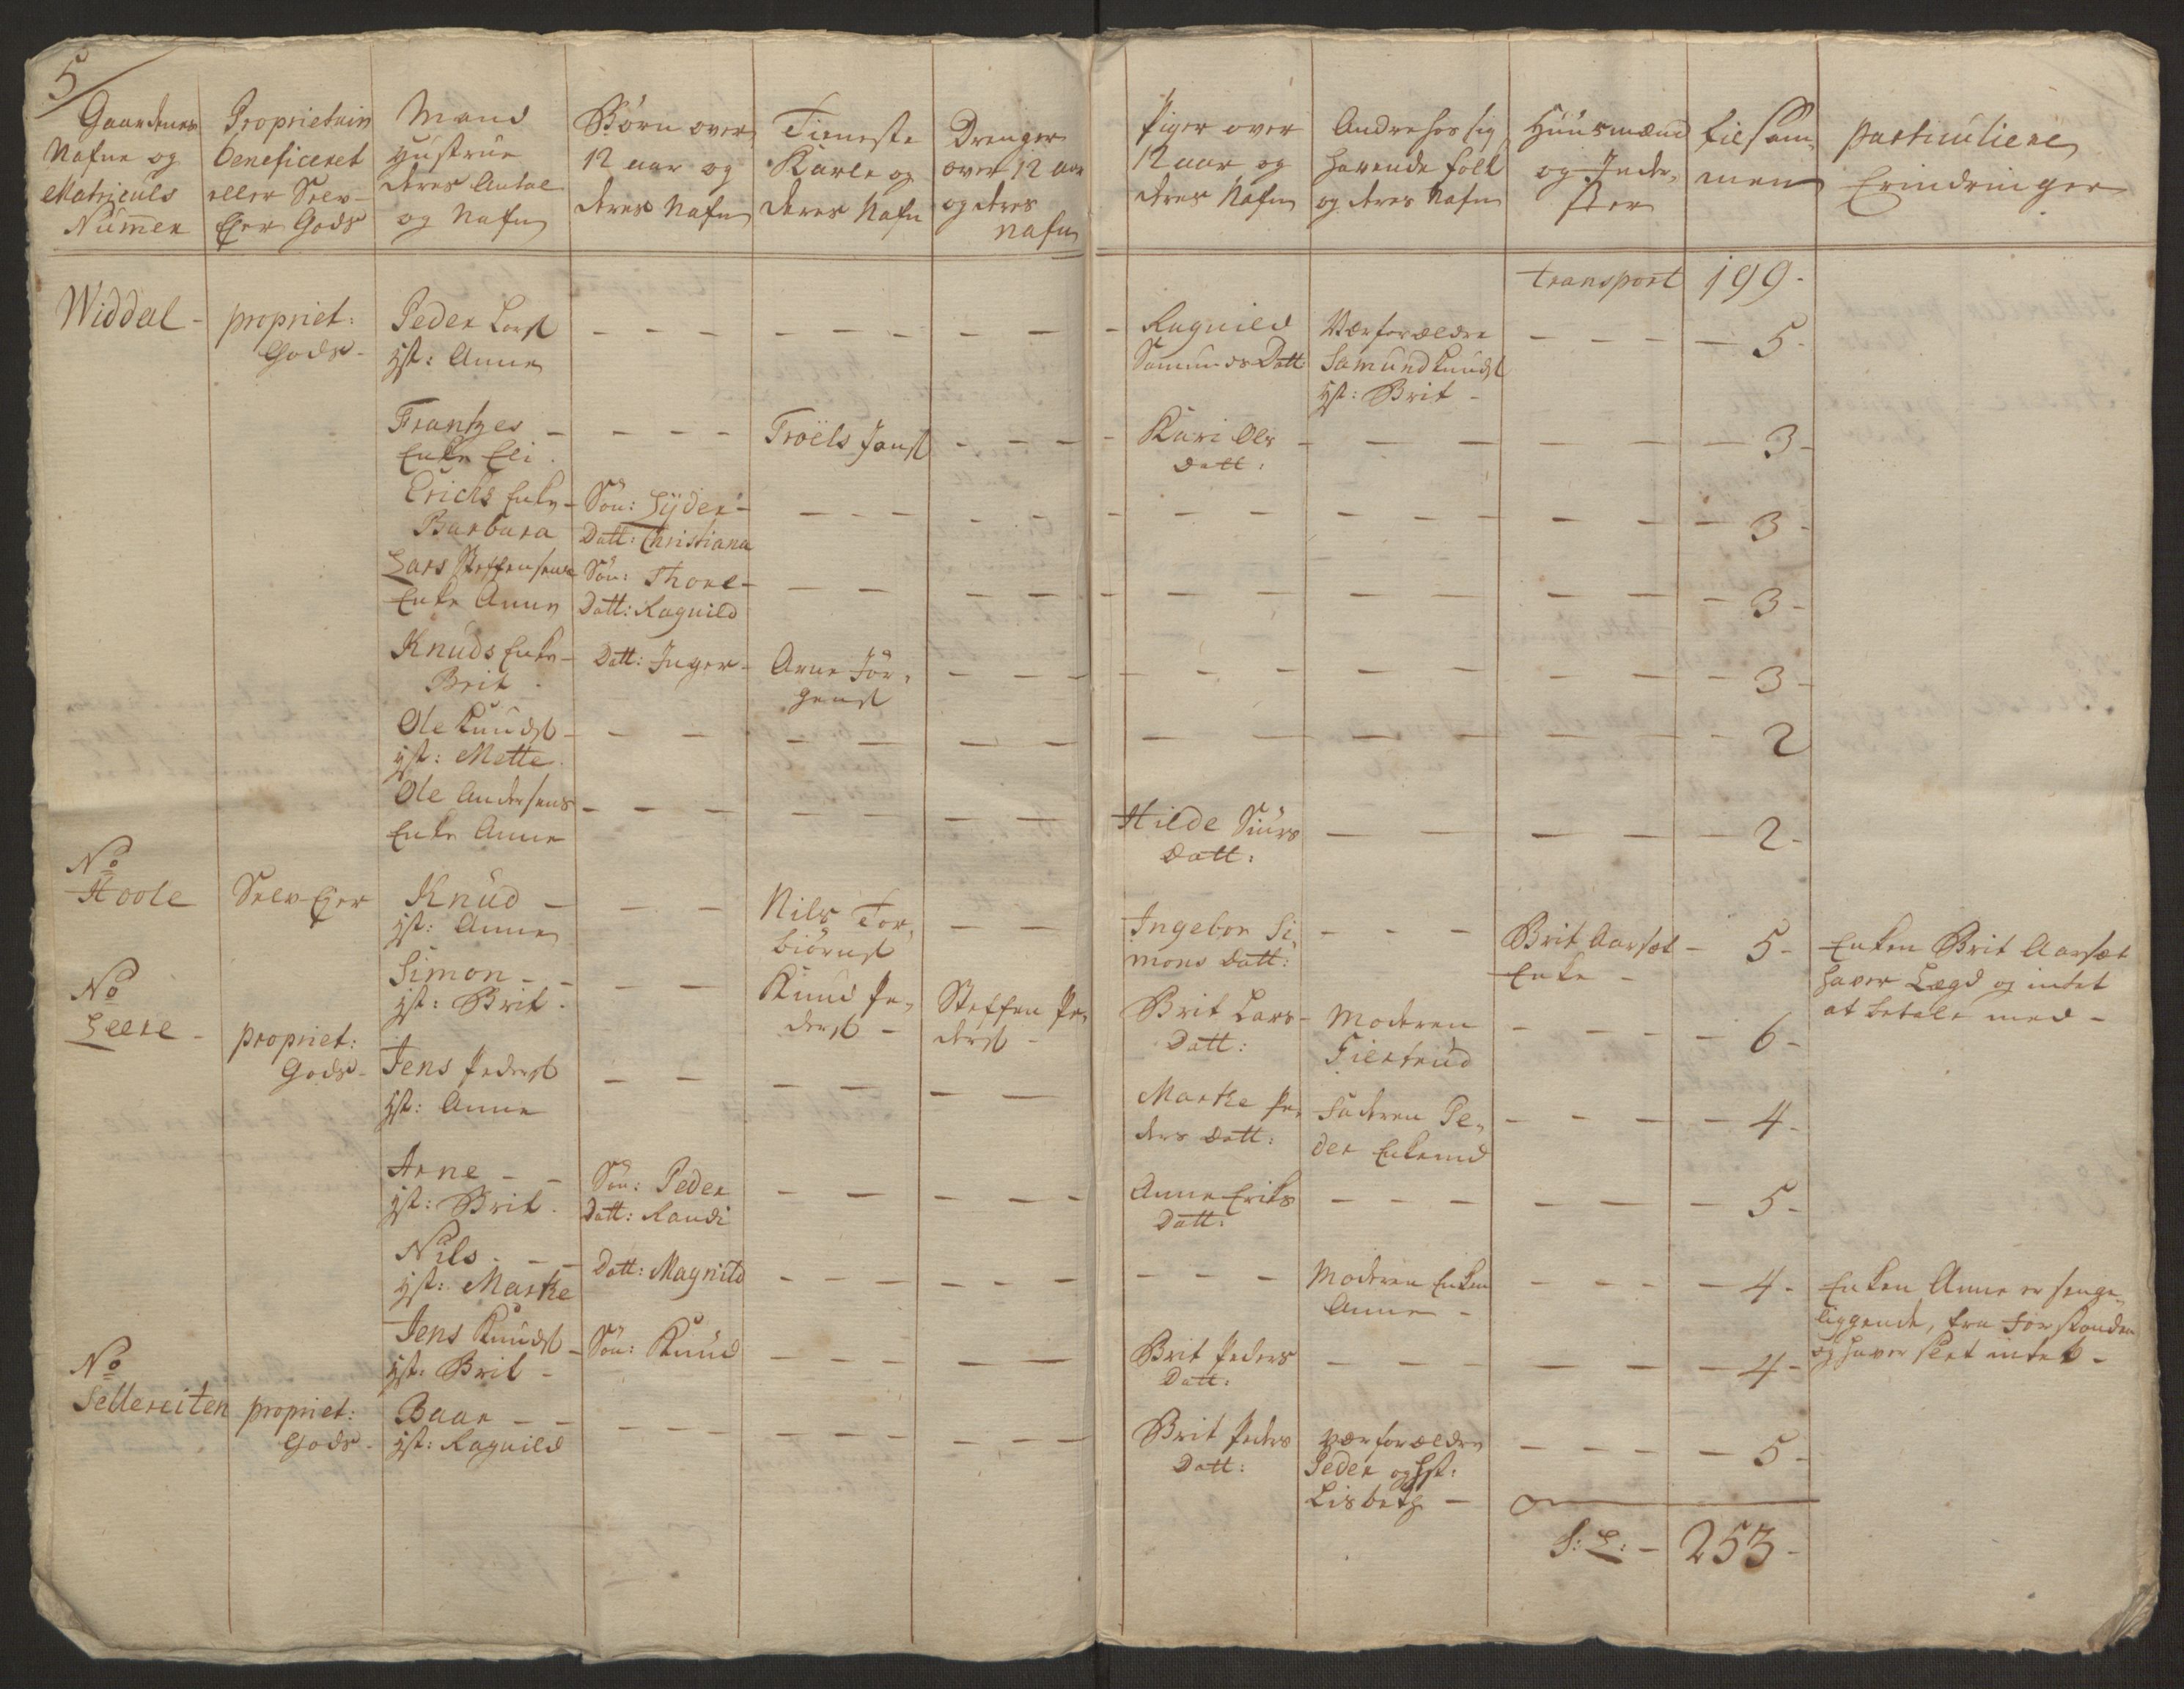 5
Gaardenes Nafne og Matriculs Nummer
Proprietair beneficeret eller Selv-Ejer Gods
Mand Hustrue deres Antal og Nafn
Børn over 12 aar og deres Nafn
Tieneste Karle og deres Nafn
Drenger over 12 aar og deres nafn
Piger over 12 aar og deres Nafn
Andre hos sig havende folk og deres Nafn
Huusmænd og Inderster
tilsammen
particuliere Erindringer
transport 199-
Widdal - propriet: Gods-
Peder Larss: Hst: Anne
Ragnild Samunds Datt:
Værforældre Samund Knuds: Hst: Brit -
5-
Frantzes Enke Eli
Troels Jans:
Kari Ols Datt:
3-
Erichs Enke Barbara
Søn: Sÿder- Datt: Christiana
3-
Lars Steffensens Enke Anne
Søn: Thore- Datt: Ragnild
3-
Knuds Enke Brit
Datt: Inger-
Arne Jørgens:
3-
Ole Knuds: Hst: Mette
2
Ole Andersens Enke Anne
Hilde Siurs Datt:
2-
No
Hoole Selv-Ejer
Knud - Hst: Anne
Nils Torbiørns:
Ingebor Simons Datt:
Brit Aarsæt Enke -
5-
Enken Brit Aarsæt
haver Lægd og intet
at betale med -
No
Leere - propriet: Gods-
Simon - Hst: Brit
Knud Peders: -
Steffen Peders: -
Brit Lars Datt:
Moderen Giertrud
6-
Jens Peders: Hst: Anne
Marthe Peders Datt:
Faderen Peder Enkemd
4-
Arne - Hst: Brit
Søn: Peder Datt: Randi
Anne Eriks Datt:
5-
Nils - Hst: Marthe
Datt: Magnild
Moderen Enken Anne -
4-
Enken Anne er senge-
liggende, fra Forstanden
og haver slet intet -
Jens Knuds: Hst: Brit -
Søn: Knud
Brit Peders Datt:
4-
No
Sellereiten propriet: Gods-
Baar - Hst: Ragnild
Brit Peders Datt:
Værforældre Peder og Hst: Lisbeth -
5-
S: L: - 253-